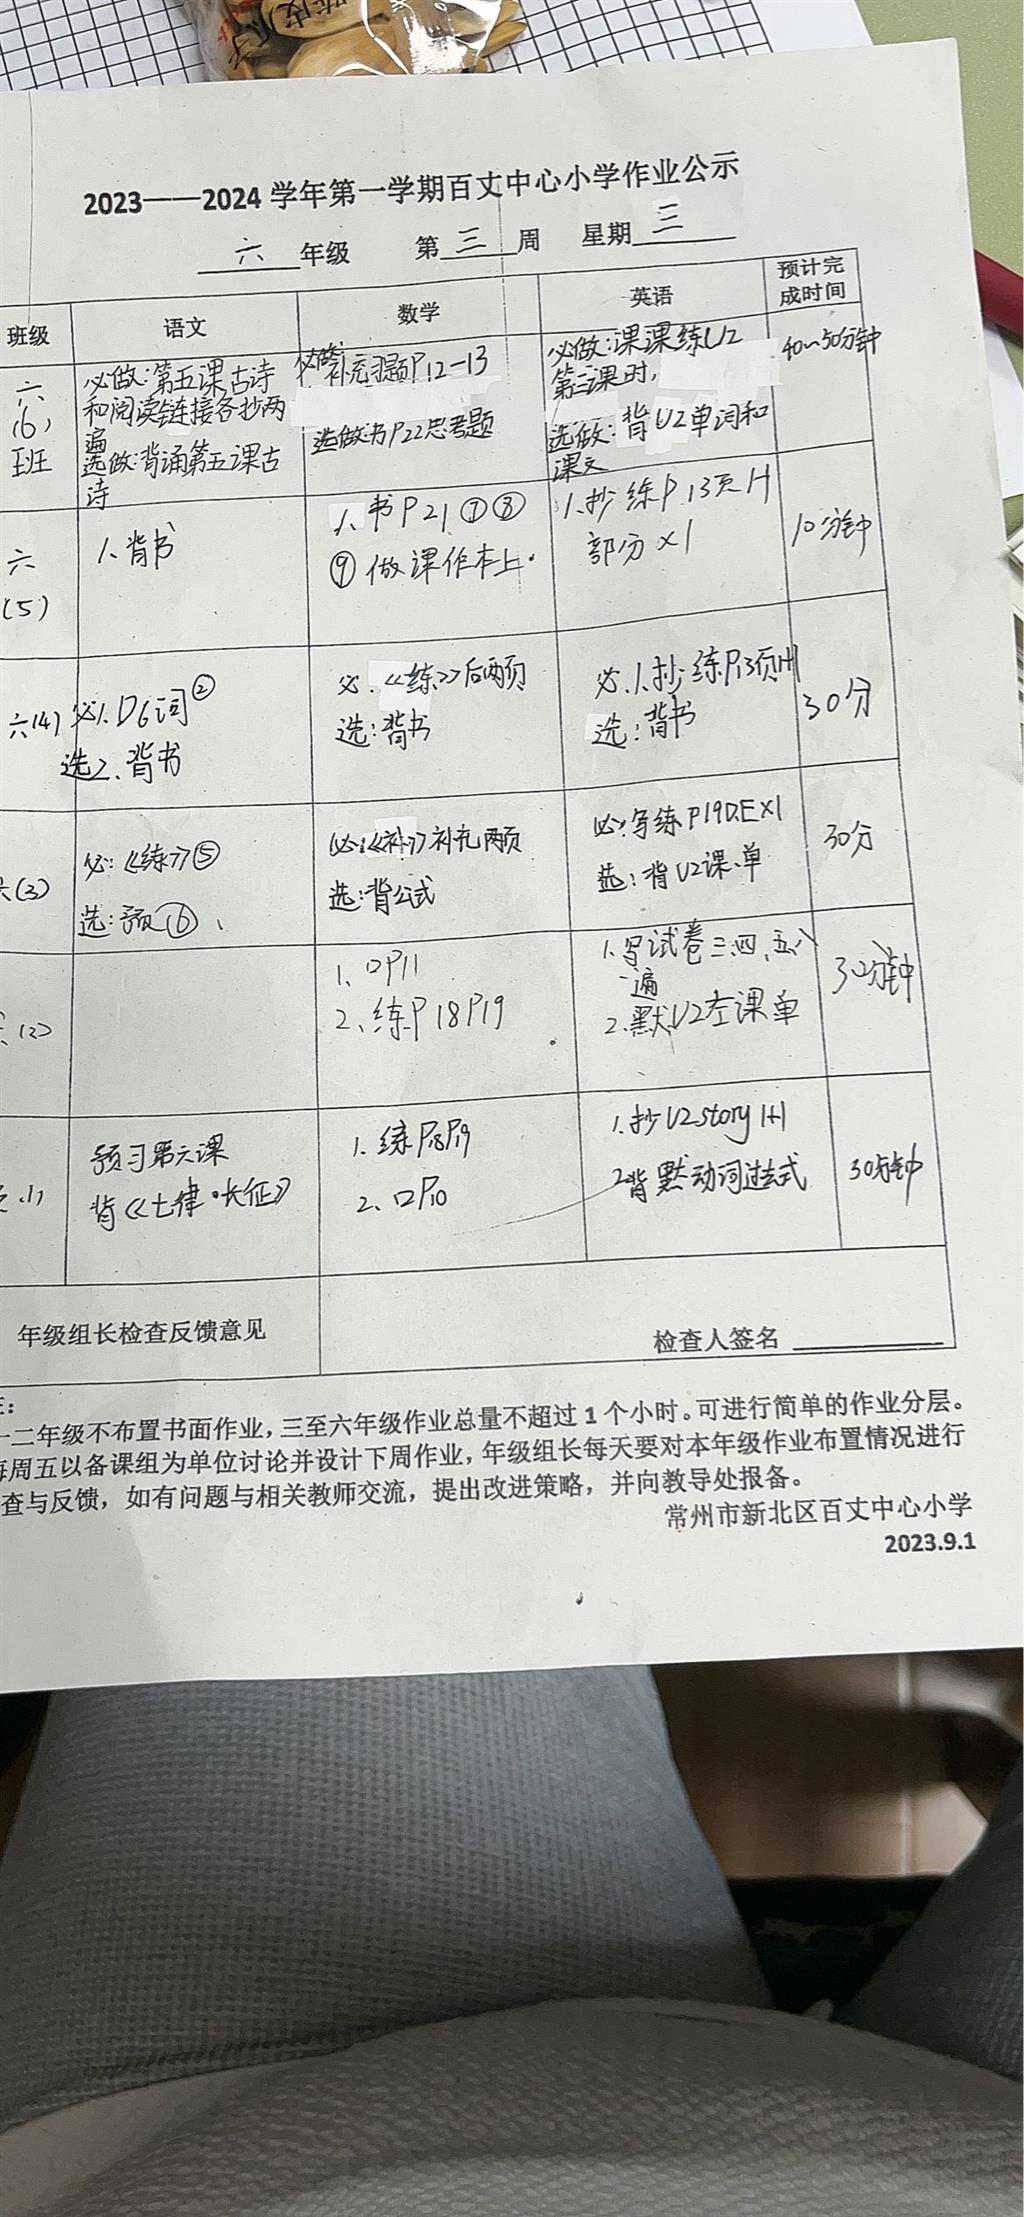 2023——2024 学年第一学期百丈中心小学作业公示
六 年级 第 三 周 星期 三
班级 语文 数学 英语 预计完
成时间
六
(6)
班
必做:第五课古诗
和阅读链接各抄两
遍
选做:背诵第五课古
诗
必做:补充习题P12-13
选做:书P22思考题
必做:课课练U2
第三课时,
选做:背U2单词和
课文
40~50分钟
六
(5)
1、背书
1、书P21⑦⑧
⑨做课作本上.
1、抄练P13页H
部分×1
10分钟
六(4)
必1、D6词②
选2、背书
必.《练》后两页
选:背书
必.1、抄练P13页H
选:背书
30分
(3)
必:《练》⑤
选:预⑥、
必:《补》补充两页
选:背公式
必:写练P19D.E×1
选:背U2课.单
30分
(2)
1、口P11
2、练P18P19
1、写试卷三.四、五、八
一遍
2、默U2左课单
30分钟
预习第六课
背《七律·长征》
1、练P18P19
2、口P10
1、抄U2story 1+1
2背默动词过去式
30分钟
年级组长检查反馈意见
检查人签名
二年级不布置书面作业,三至六年级作业总量不超过 1 个小时。可进行简单的作业分层。
每周五以备课组为单位讨论并设计下周作业,年级组长每天要对本年级作业布置情况进行
查与反馈,如有问题与相关教师交流,提出改进策略,并向教导处报备。
常州市新北区百丈中心小学
2023.9.1